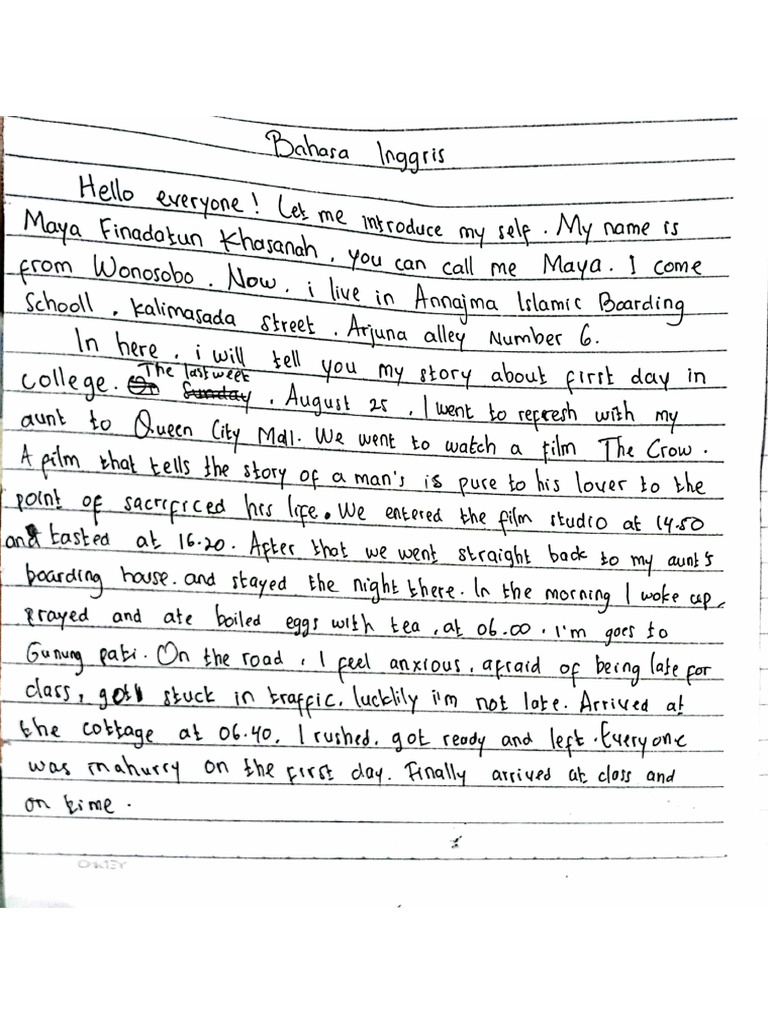 Bahasa Inggris
Hello everyone! Let me introduce my self. My name is
Maya Finadatun Khasanah, you can call me Maya. I come
from Wonosobo. Now, i live in Annajma Islamic Boarding
Schooll, Kalimasada street, Arjuna alley Number 6.
In here, i will tell you my story about first day in
college. The last week, August 25, I went to refresh with my
aunt to Queen City Mall. We went to watch a film The Crow.
A film that tells the story of a man's is pure to his lover to the
point of sacrificed his life. We entered the film studio at 14.50
and tasted at 16.20. After that we went straight back to my aunt's
boarding house. and stayed the night there. In the morning I woke up,
prayed and ate boiled eggs with tea, at 06.00. I'm goes to
Gunung pati. On the road, I feel anxious, afraid of being late for
class, got stuck in traffic, lucklily i'm not late. Arrived at
the cottage at 06.40, I rushed, got ready and left. Everyone
was inahurry on the first day. Finally arrived at class and
on time.